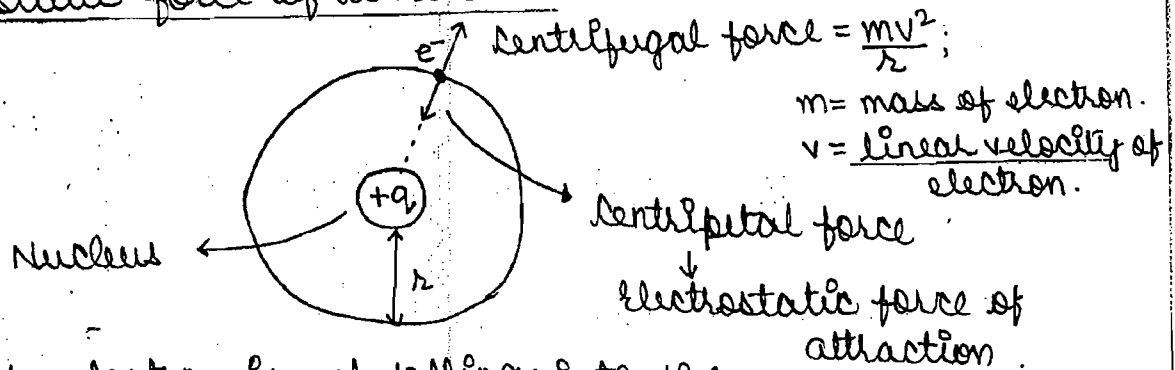 force of
e⁻ Centrifugal force = mv²/r ;
m = mass of electron.
v = linear velocity of
electron.
+q
Centripetal force
Nucleus
r
↓
Electrostatic force of
attraction